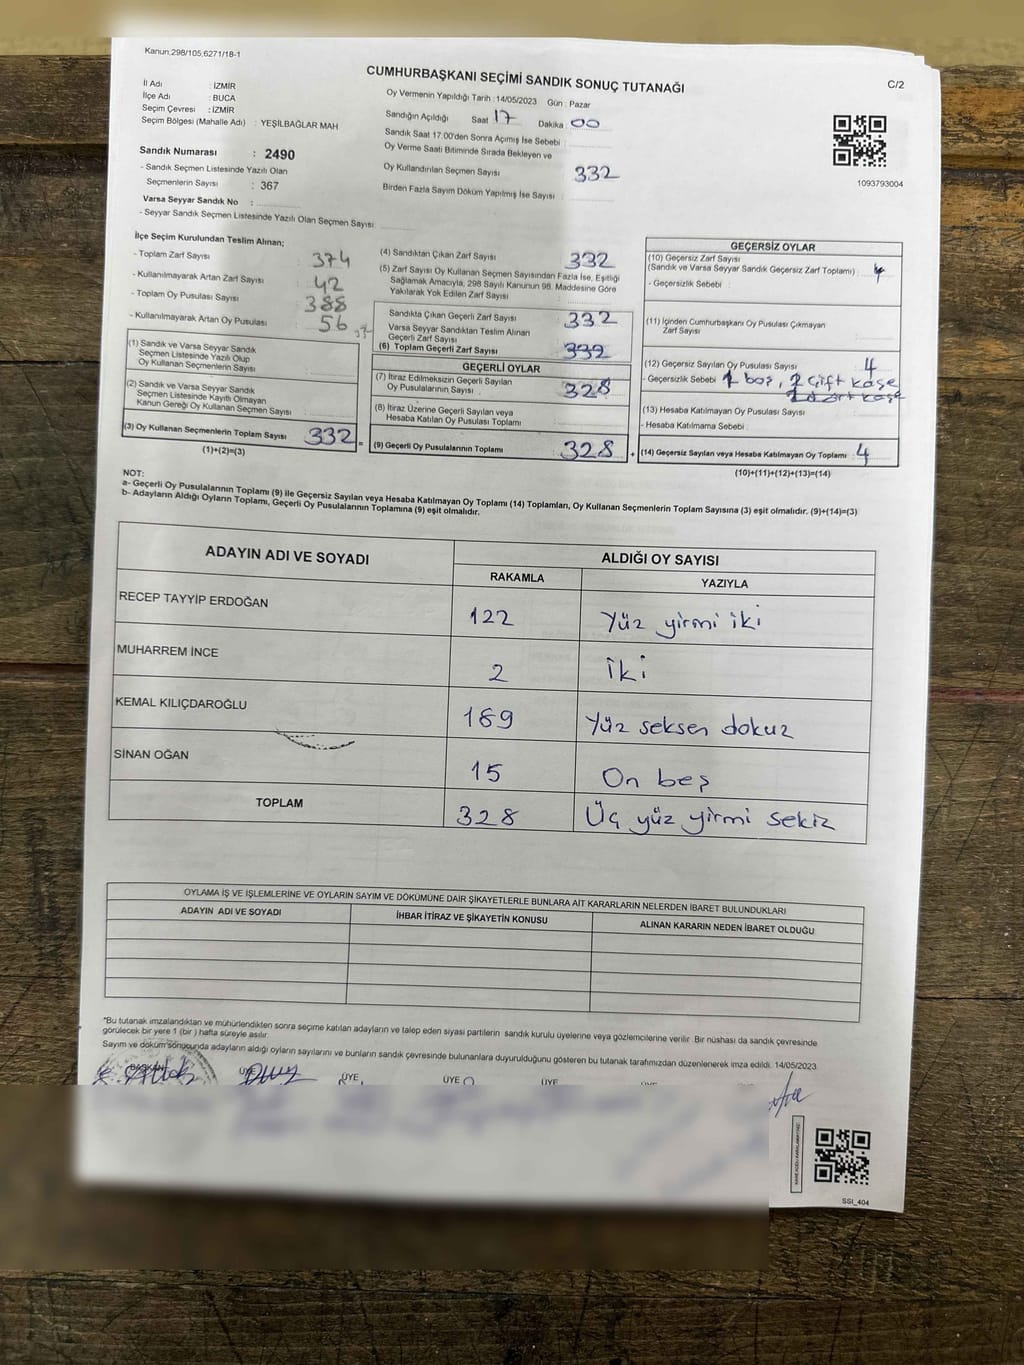 Kanun,298/105,6271/18-1
CUMHURBAŞKANI SEÇİMİ SANDIK SONUÇ TUTANAĞI
C/2
İl Adı : İZMİR
İlçe Adı : BUCA
Seçim Çevresi : İZMİR
Seçim Bölgesi (Mahalle Adı) : YEŞİLBAĞLAR MAH
Sandık Numarası : 2490
- Sandık Seçmen Listesinde Yazılı Olan
Seçmenlerin Sayısı : 367
Varsa Seyyar Sandık No :
- Seyyar Sandık Seçmen Listesinde Yazılı Olan Seçmen Sayısı:
Oy Vermenin Yapıldığı Tarih : 14/05/2023 Gün : Pazar
Sandığın Açıldığı Saat 17 Dakika : 00
Sandık Saat 17.00'den Sonra Açılmış İse Sebebi :
Oy Verme Saati Bitiminde Sırada Bekleyen ve
Oy Kullandırılan Seçmen Sayısı : 332
Birden Fazla Sayım Döküm Yapılmış İse Sayısı :
1093793004
İlçe Seçim Kurulundan Teslim Alınan;
- Toplam Zarf Sayısı : 374
- Kullanılmayarak Artan Zarf Sayısı : 42
- Toplam Oy Pusulası Sayısı : 388
- Kullanılmayarak Artan Oy Pusulası : 56
(1) Sandık ve Varsa Seyyar Sandık
Seçmen Listesinde Yazılı Olup
Oy Kullanan Seçmenlerin Sayısı :
(2) Sandık ve Varsa Seyyar Sandık
Seçmen Listesinde Kayıtlı Olmayan
Kanun Gereği Oy Kullanan Seçmen Sayısı :
(3) Oy Kullanan Seçmenlerin Toplam Sayısı : 332 =
(1)+(2)=(3)
(4) Sandıktan Çıkan Zarf Sayısı : 332
(5) Zarf Sayısı Oy Kullanan Seçmen Sayısından Fazla İse, Eşitliği
Sağlamak Amacıyla, 298 Sayılı Kanunun 98. Maddesine Göre
Yakılarak Yok Edilen Zarf Sayısı :
Sandıkta Çıkan Geçerli Zarf Sayısı : 332
Varsa Seyyar Sandıktan Teslim Alınan
Geçerli Zarf Sayısı :
(6) Toplam Geçerli Zarf Sayısı : 332
GEÇERLİ OYLAR
(7) İtiraz Edilmeksizin Geçerli Sayılan
Oy Pusulalarının Sayısı : 328
(8) İtiraz Üzerine Geçerli Sayılan veya
Hesaba Katılan Oy Pusulası Toplamı :
(9) Geçerli Oy Pusulalarının Toplamı : 328 +
GEÇERSİZ OYLAR
(10) Geçersiz Zarf Sayısı
(Sandık ve Varsa Seyyar Sandık Geçersiz Zarf Toplamı) :
- Geçersizlik Sebebi :
(11) İçinden Cumhurbaşkanı Oy Pusulası Çıkmayan
Zarf Sayısı :
(12) Geçersiz Sayılan Oy Pusulası Sayısı : 4
- Geçersizlik Sebebi : 1 boş, 2 çift kaşe
(13) Hesaba Katılmayan Oy Pusulası Sayısı :
- Hesaba Katılmama Sebebi :
(14) Geçersiz Sayılan veya Hesaba Katılmayan Oy Toplamı : 4
(10)+(11)+(12)+(13)=(14)
NOT:
a- Geçerli Oy Pusulalarının Toplamı (9) ile Geçersiz Sayılan veya Hesaba Katılmayan Oy Toplamı (14) Toplamları, Oy Kullanan Seçmenlerin Toplam Sayısına (3) eşit olmalıdır. (9)+(14)=(3)
b- Adayların Aldığı Oyların Toplamı, Geçerli Oy Pusulalarının Toplamına (9) eşit olmalıdır.
ADAYIN ADI VE SOYADI
ALDIĞI OY SAYISI
RAKAMLA YAZIYLA
RECEP TAYYİP ERDOĞAN 122 Yüz yirmi iki
MUHARREM İNCE 2 İki
KEMAL KILIÇDAROĞLU 189 Yüz seksen dokuz
SİNAN OĞAN 15 On beş
TOPLAM 328 Üç yüz yirmi sekiz
OYLAMA İŞ VE İŞLEMLERİNE VE OYLARIN SAYIM VE DÖKÜMÜNE DAİR ŞİKAYETLERLE BUNLARA AİT KARARLARIN NELERDEN İBARET BULUNDUKLARI
ADAYIN ADI VE SOYADI İHBAR İTİRAZ VE ŞİKAYETİN KONUSU ALINAN KARARIN NEDEN İBARET OLDUĞU
*Bu tutanak imzalandıktan ve mühürlendikten sonra seçime katılan adayların ve talep eden siyasi partilerin sandık kurulu üyelerine veya gözlemcilerine verilir. Bir nüshası da sandık çevresinde
görülecek bir yere 1 (bir ) hafta süreyle asılır.
Sayım ve döküm sonucunda adayların aldığı oyların sayılarını ve bunların sandık çevresinde bulunanlara duyurulduğunu gösteren bu tutanak tarafımızdan düzenlenerek imza edildi. 14/05/2023
BAŞKAN ÜYE ÜYE ÜYE ÜYE
SSI_404